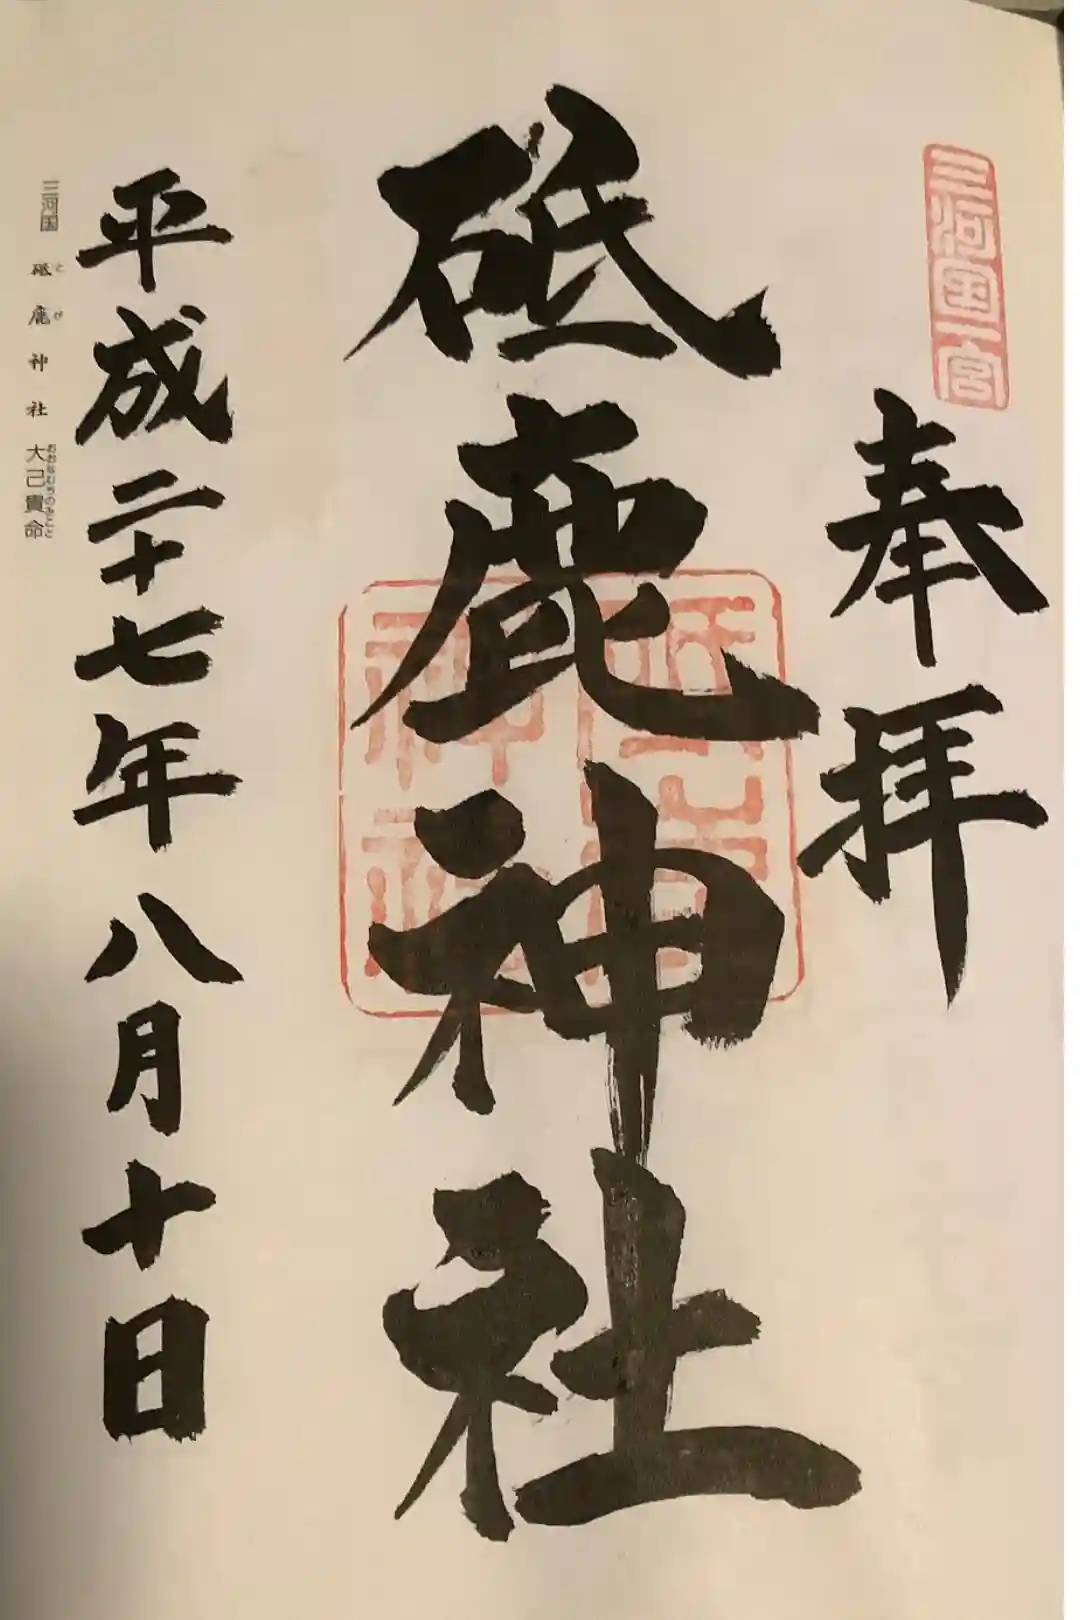 三河国一宮
奉拝
砥鹿神社
平成二十七年八月十日
三河国 砥鹿神社 大己貴命
とが
おおなむちのみこと